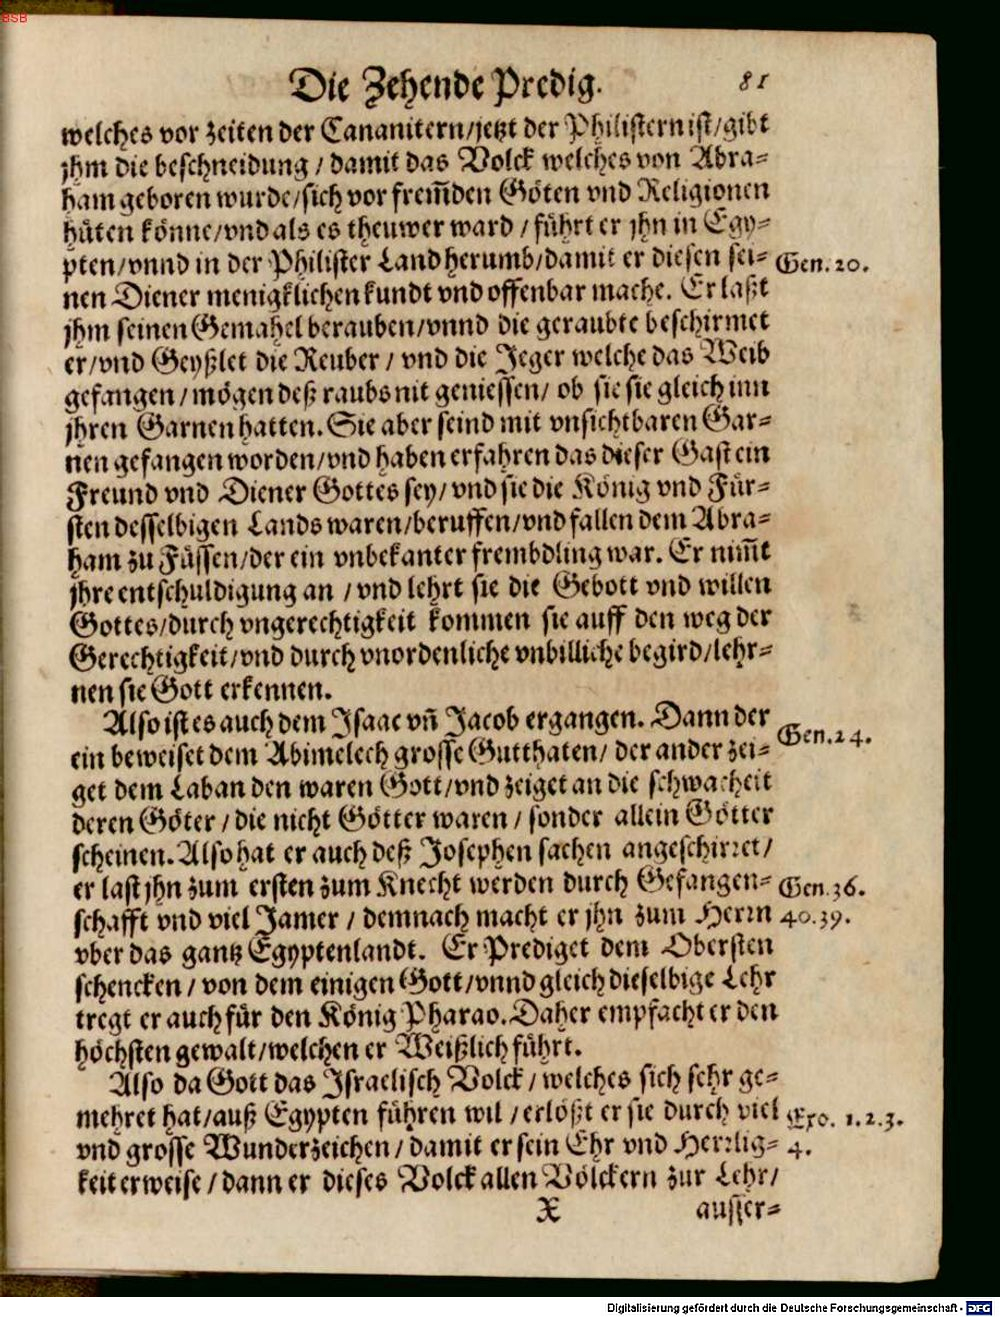 BSB
Die Zehende Predig. 81
welches vor zeiten der Cananitern/jetzt der Philistern ist/gibt
jhm die beschneidung/damit das Volck welches von Abra-
ham geboren wurde/sich vor frem̃den Göten vnd Religionen
hüten könne/vnd als es theuwer ward/führt er jhn in Egy-
pten/vnnd in der Philister Land herumb/damit er diesen sei- Gen. 20.
nen Diener menigklichen kundt vnd offenbar mache. Er laßt
jhm seinen Gemahel berauben/vnnd die geraubte beschirmet
er/vnd Geyßlet die Reuber/vnd die Jeger welche das Weib
gefangen/mögen deß raubs nit geniessen/ob sie sie gleich inn
jhren Garnen hatten. Sie aber seind mit vnsichtbaren Gar-
nen gefangen worden/vnd haben erfahren das dieser Gast ein
Freund vnd Diener Gottes sey/vnd sie die König vnd Für-
sten desselbigen Lands waren/beruffen/vnd fallen dem Abra-
ham zu Füssen/der ein vnbekanter frembdling war. Er nim̃t
jhre entschuldigung an/vnd lehrt sie die Gebott vnd willen
Gottes/durch vngerechtigkeit kommen sie auff den weg der
Gerechtigkeit/vnd durch vnordenliche vnbilliche begird/lehr-
nen sie Gott erkennen.
Also ist es auch dem Isaac vñ Jacob ergangen. Dann der
ein beweiset dem Abimelech grosse Gutthaten/der ander zei- Gen. 24.
get dem Laban den waren Gott/vnd zeiget an die schwacheit
deren Göter/die nicht Götter waren/sonder allein Götter
scheinen. Also hat er auch deß Josephen sachen angeschirret/
er last jhn zum ersten zum Knecht werden durch Gefangen- Gen. 36.
schafft vnd viel Jamer/demnach macht er jhn zum Herrn 40.39.
vber das gantz Egyptenlandt. Er Prediget dem Obersten
schencken/von dem einigen Gott/vnnd gleich dieselbige Lehr
tregt er auch für den König Pharao. Daher empfacht er den
höchsten gewalt/welchen er Weißlich führt.
Also da Gott das Israelisch Volck/welches sich sehr ge-
mehret hat/auß Egypten führen wil/erlößt er sie durch viel Exo. 1.2.3.
vnd grosse Wunderzeichen/damit er sein Ehr vnd Herrlig- 4.
keit erweise/dann er dieses Volck allen Völckern zur Lehr/
X ausser-
Digitalisierung gefördert durch die Deutsche Forschungsgemeinschaft - DFG